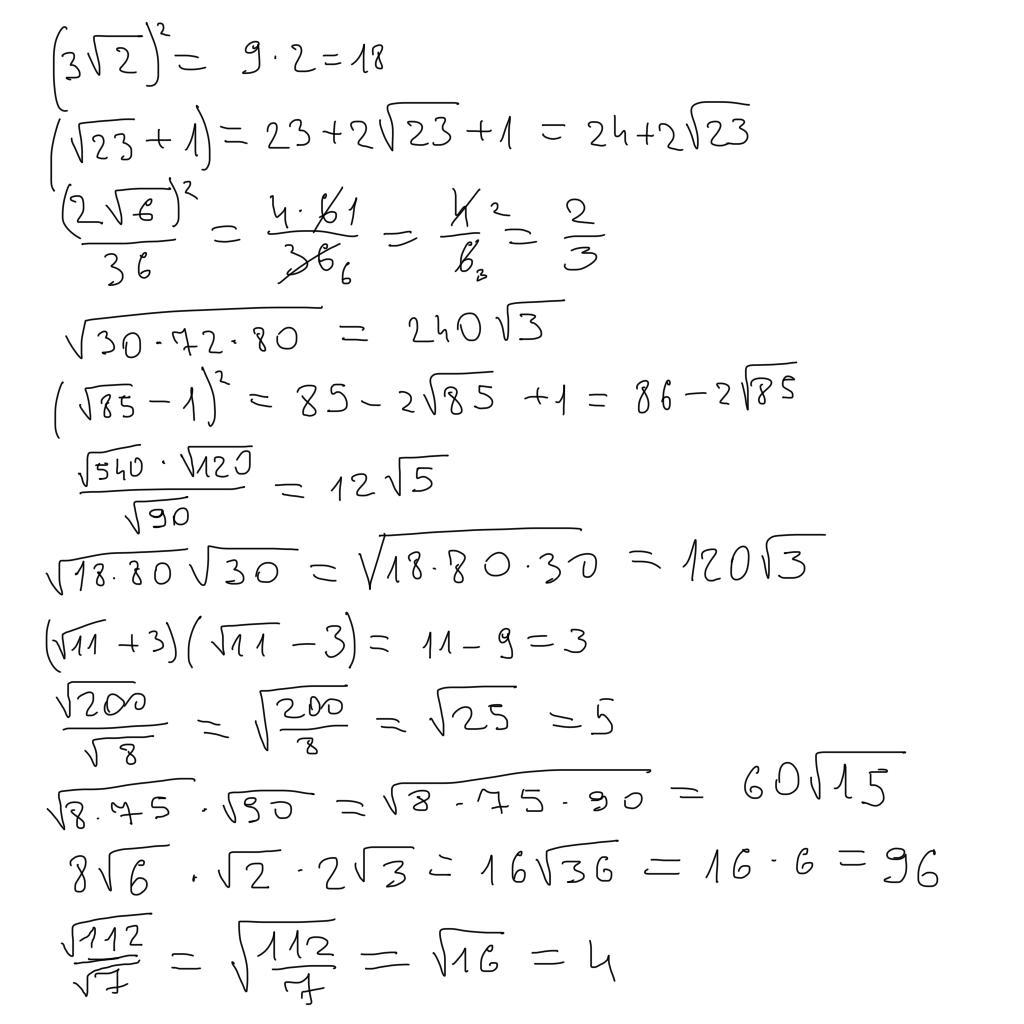 (3√2)² = 9·2 = 18
(√23 + 1) = 23 + 2√23 + 1 = 24 + 2√23
(2√6)²/36 = 4·6 1/36 6 = 4 2/6 3 = 2/3
√(30·72·80) = 240√3
(√85 − 1)² = 85 − 2√85 + 1 = 86 − 2√85
(√540 · √120)/√90 = 12√5
√(18·80) √30 = √(18·80·30) = 120√3
(√11 + 3)(√11 − 3) = 11 − 9 = 3
√200/√8 = √(200/8) = √25 = 5
√(8·75) · √90 = √(8·75·90) = 60√15
8√6 · √2 · 2√3 = 16√36 = 16·6 = 96
√112/√7 = √(112/7) = √16 = 4